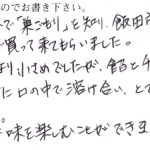 のでお書き下さい。
で「巣ごもり」を知り、飯田市
買って来てもらいました。
り小さめでしたが、餡とチ
た口の中で溶け合い、とて
。
味を楽しむことができま